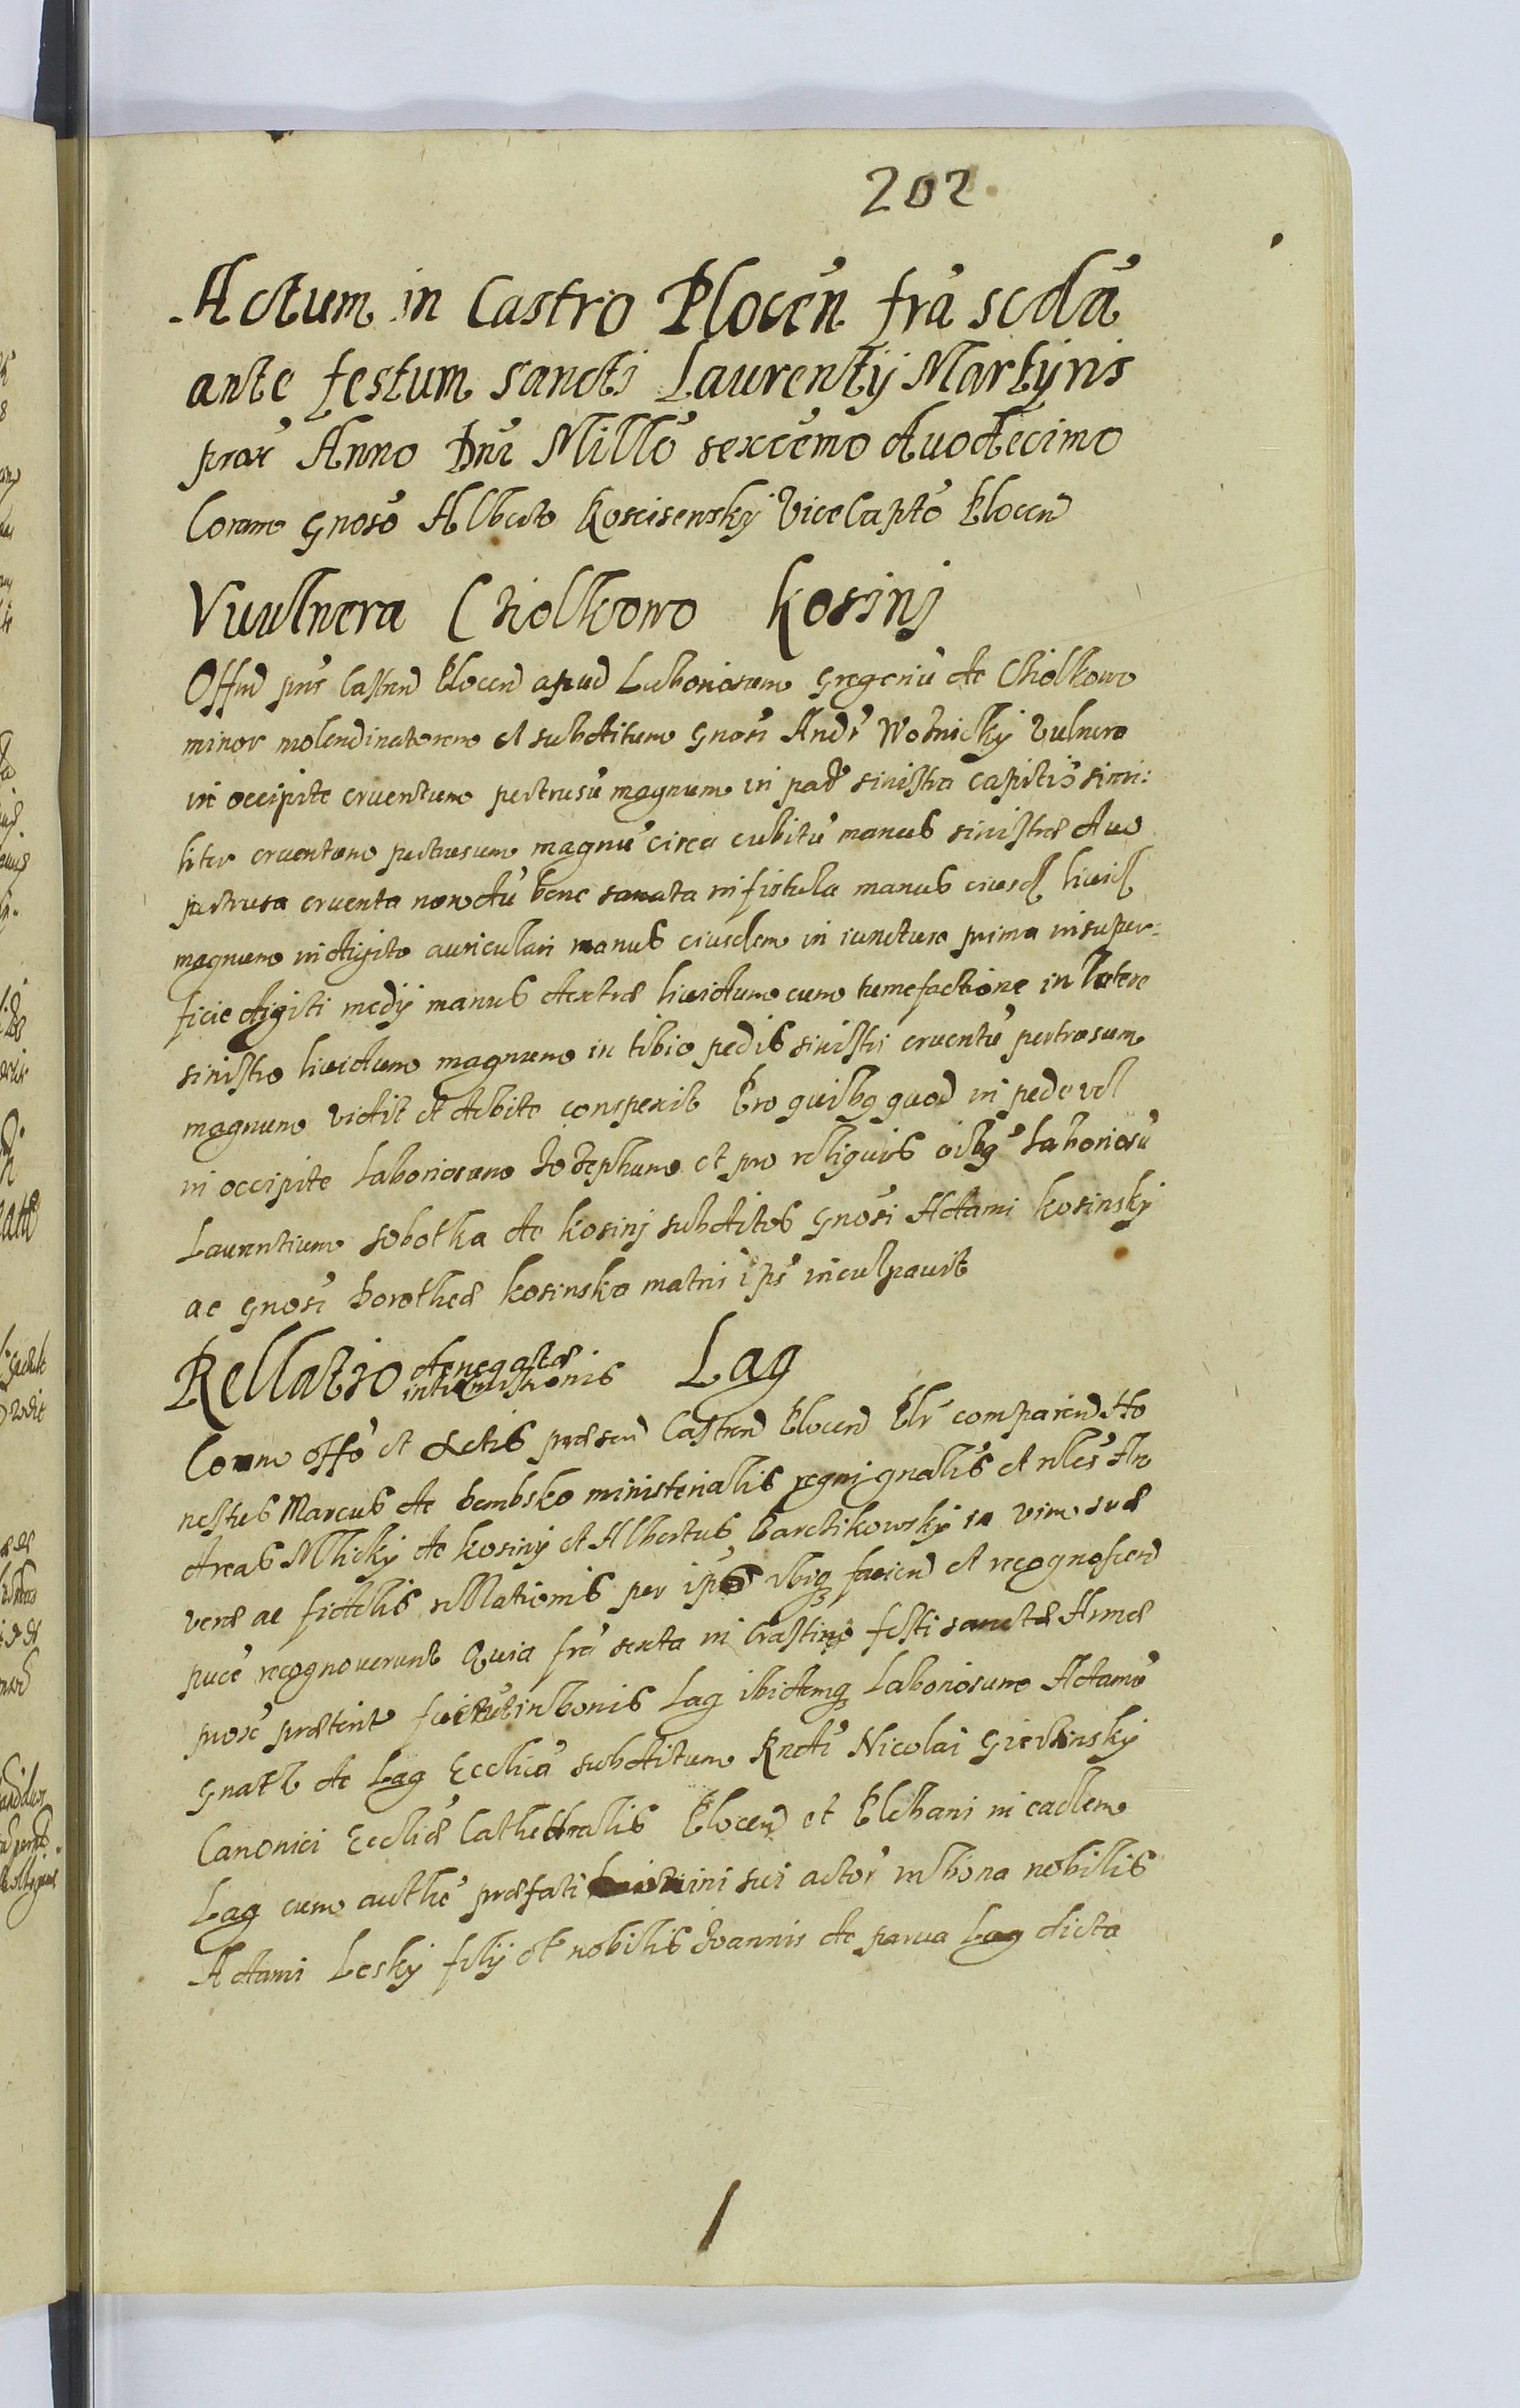 202
Actum in Castro Plocen fra scda
ante festum Sancti Laurentij Martyris
prox Anno Dni Millo sexcemo duodecimo
Coram Gnoso Alberto Koscisensky ViceCapto Plocen
Vuulnera Chiolkowo Kosinj
Offm pns Castren Plocen apud Laboriosum Gregoriu de Chiolkowo
minor molendinatorem et subditum Gnosi Andr Woznicky Vulnera
in occipite cruentum pertrusu magnum in parte sinistra capitis simi:
liter cruentum pertrusum magnu circa cubitu manus sinistræ duo
pertrusa cruenta nondu bene sanata in fistula manus eiusd liuid
magnum in digito auriculari manus eiusdem in iunctura prima in super=
ficie digiti medij manus dextræ liuidum cum tumefactione in latere
sinistro liuidum magnum in tibio pedis sinistri cruentu pertrusum
magnum vidit et debite conspexit Pro quibq quod in pede vel
in occipite Laboriosum Josephum et pro reliquis oibq Laboriosu
Laurentium Sobotka de Kosinj subditos Gnosi Adami Kosinsky
ac Gnosi Dorotheæ Kosinska matri ips inculpauit
Rellatio denegatæ intromissionis Lag
Coram offo et Actis præsen Castren Plocen Plr comparien Ho
nestus Marcus de Bembsko ministerialis regni gnalis et nles An
dreas Mlicky de Kosiny et Albertus Barcikowsky in vim suæ
veræ ac fidelis rellationis per ips vbiq facien et recognoscen
puce recognouerunt Quia fra sexta in Crastino festi sanctæ Annæ
prox præterit in bonis Lag ibidemq Laboriosum Adamu
Gnatt de Lag Ecclica subditum Rndi Nicolai
Canonici Ecclie Cathedralis Plocen et Plebani in eadem
Lag cum authe præfati Domini sui actor in bona nobilis
Adami Lesky filij ol nobilis Joannis de parua Lag dicta